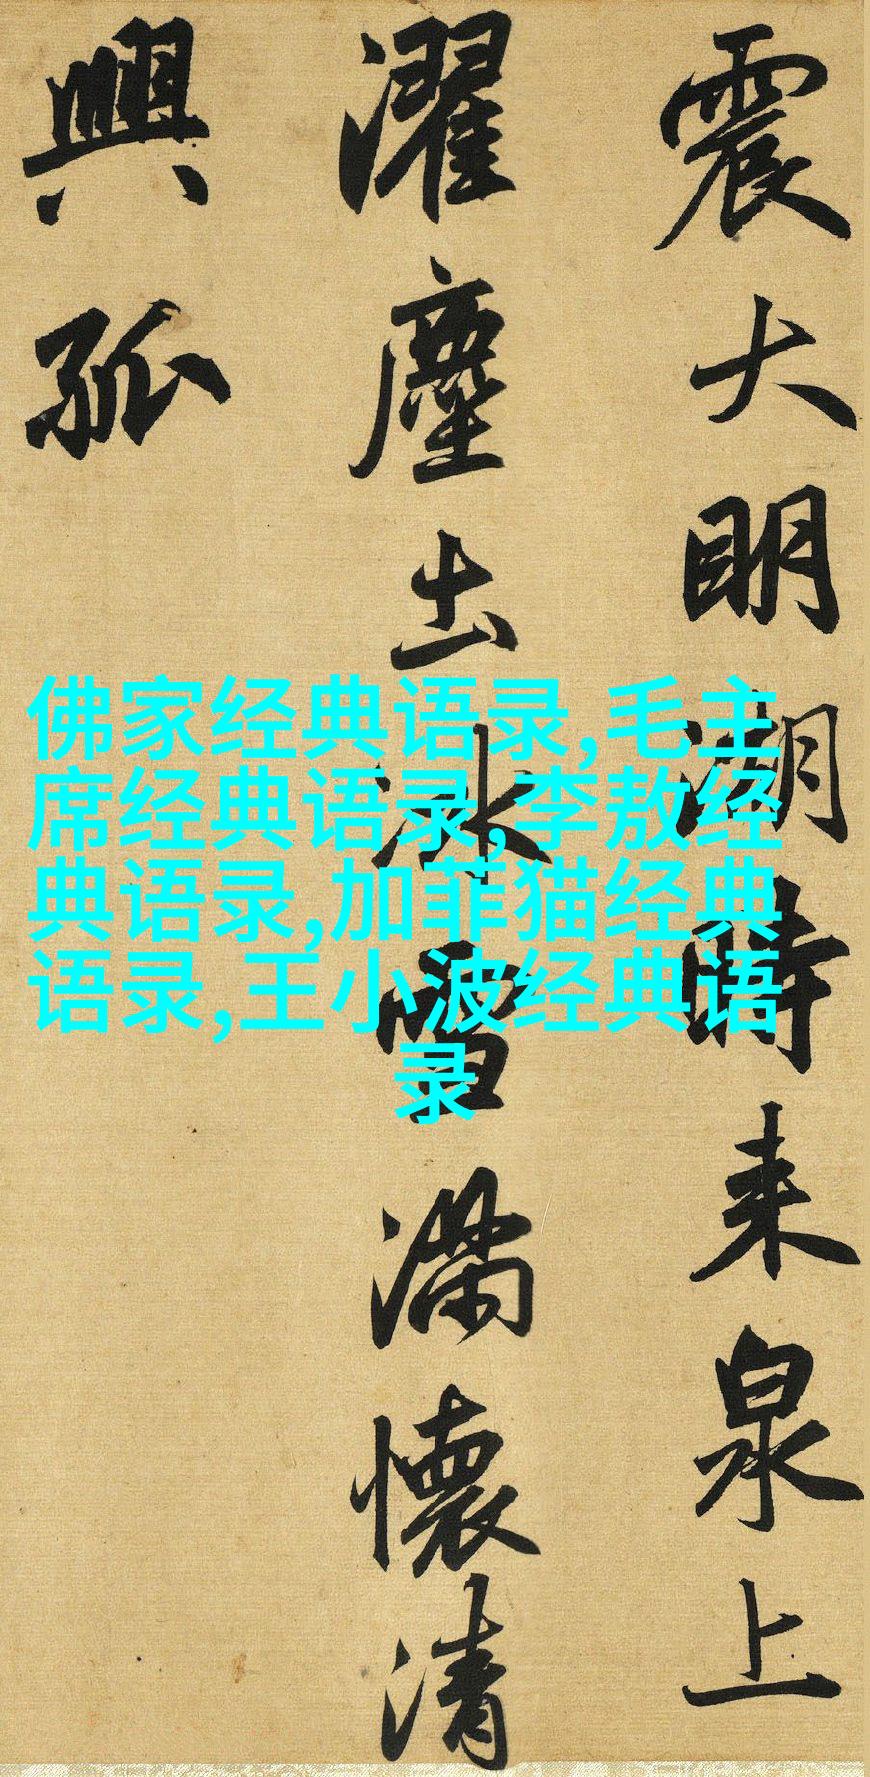 震大明湖時来泉上
濯塵出冰雪滿懷清
興孤
佛家经典语录,毛主
席经典语录,李敖经
典语录,加菲猫经典
语录,王小波经典语
录